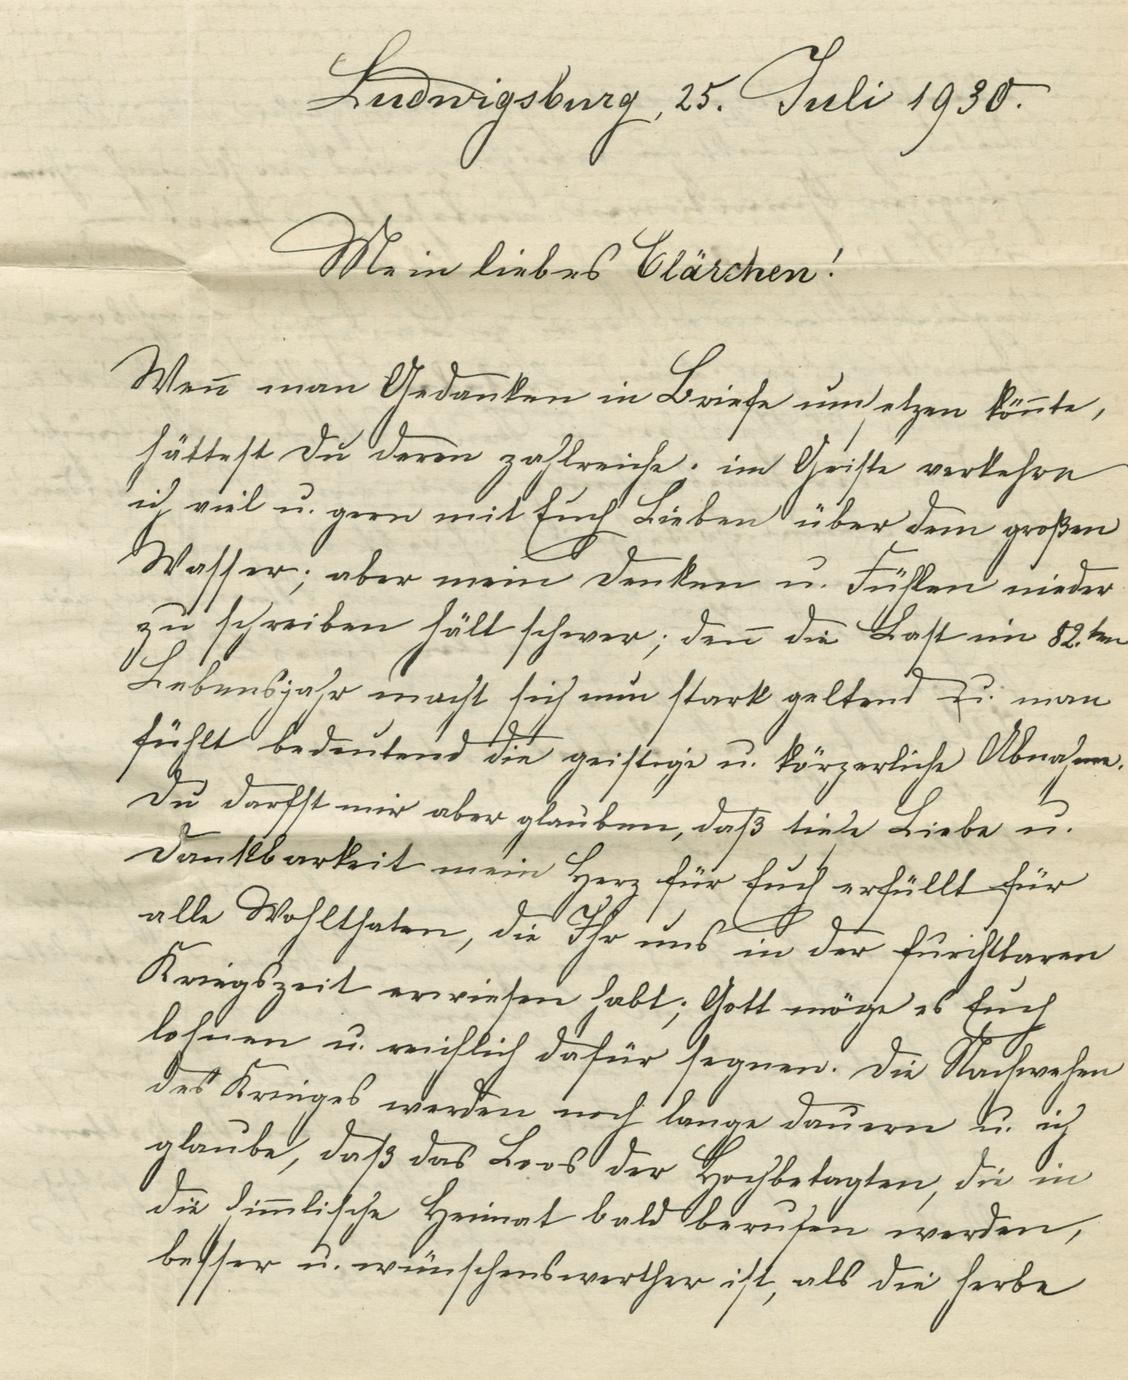 Ludwigsburg, 25. Juli 1930.
Mein liebes Clärchen!
Wen̄ man Gedanken in Briefe umsetzen kön̄te,
hättest Du deren zahlreiche. im Geiste verkehre
ich viel u. gern mit Euch Lieben über dem großen
Wasser; aber mein Denken u. Fühlen nieder
zu schreiben hält schwer; den̄ die Last im 82.ten
Lebensjahr macht sich nun stark geltend u. man
fühlt bedeutend die geistige u. körperliche Abnahme.
Du darfst mir aber glauben, daß tiefe Liebe u.
Dankbarkeit mein Herz für Euch erfüllt für
alle Wohlthaten, die Ihr uns in der furchtbaren
Kriegszeit erwiesen habt; Gott möge es Euch
lohnen u. reichlich dafür segnen. Die Nachwehen
des Krieges werden noch lange dauern u. ich
glaube, daß das Loos der Hochbetagten, die in
die him̄lische Heimat bald berufen werden,
besser u. wünschenswerther ist, als die herbe